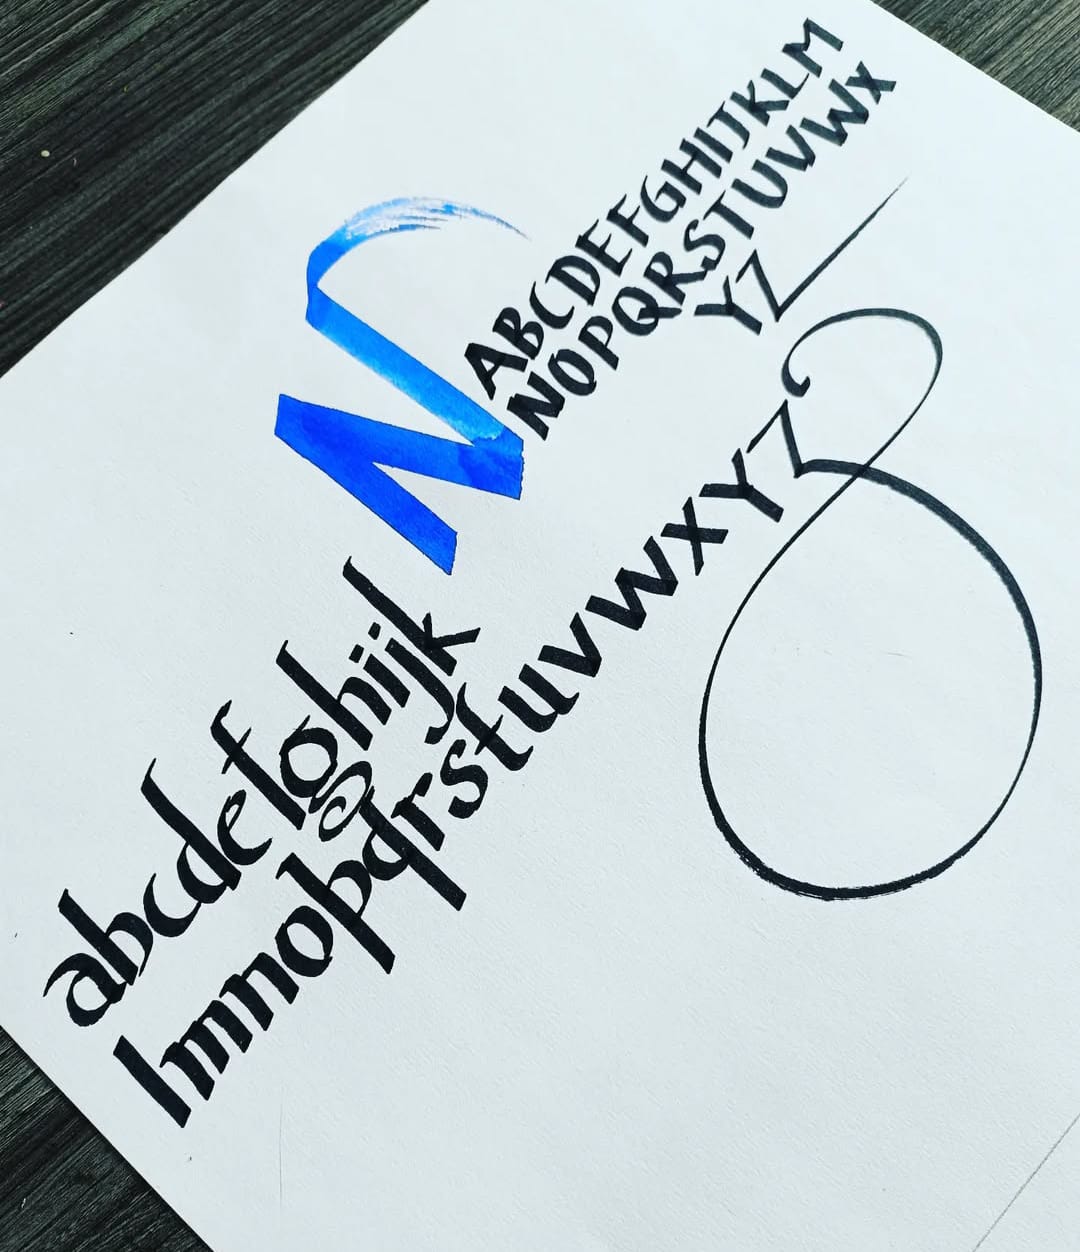 N
ABCDEFGHIJKLM
NOPQRSTUVWX
YZ
abcdefghijk
lmnopqrstuvwxyz